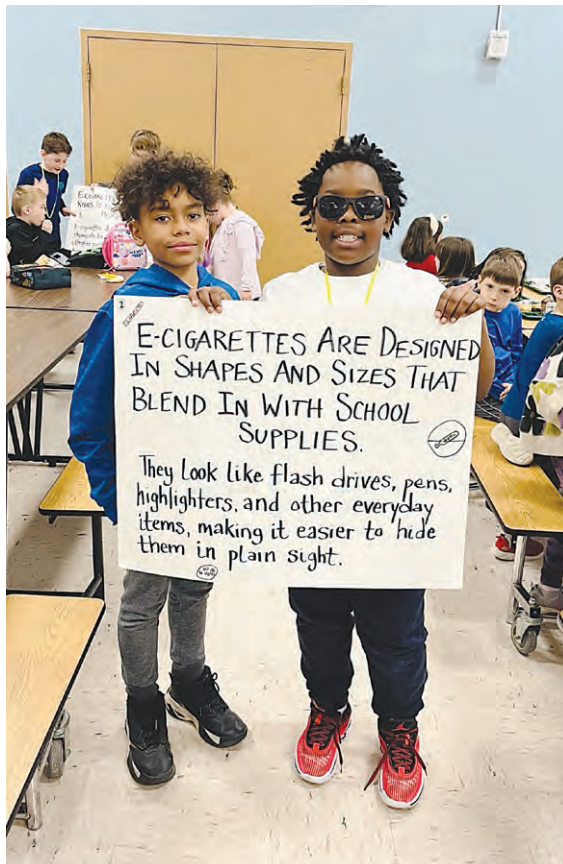 E-CIGARETTES ARE DESIGNED
IN SHAPES AND SIZES THAT
BLEND IN WITH SCHOOL
SUPPLIES.
They Look Like flash drives, pens,
highlighters, and other everyday
items, making it easier to hide
them in plain sight.